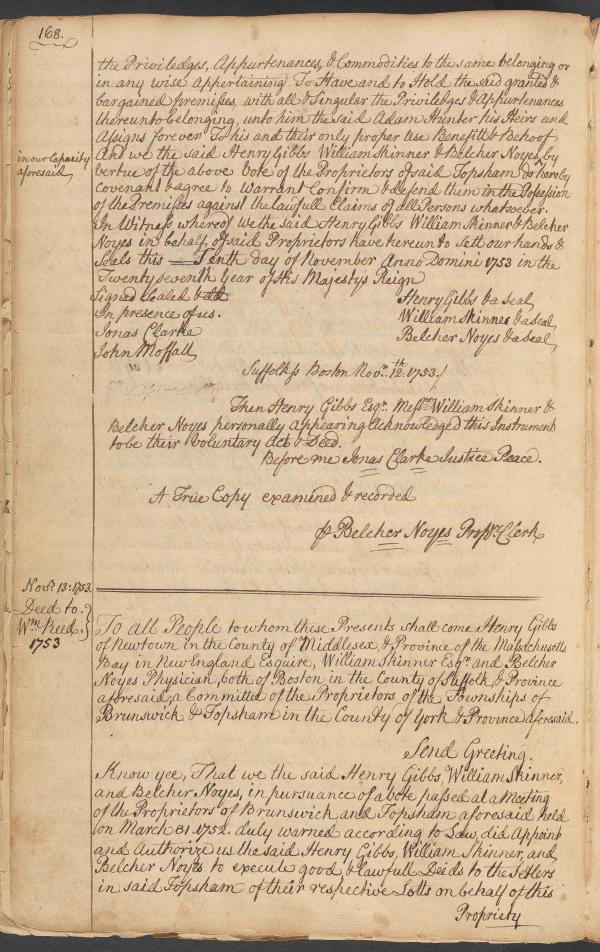 168.
the Priviledges, Appurtenances, & Commodities to the same belonging or
in any wise appertaining To Have and to Hold the said granted &
bargained premisses, with all & Singular the Priviledges & Appurtenances
thereunto belonging, unto him the said Adam Hunter his Heirs and
Assigns forever To his and their only proper Use Benefitt & Behoof
in our Capacity
aforesaid,
And we the said Henry Gibbs William Skinner & Belcher Noyes, by
vertue of the above Vote of the Proprietors of said Topsham do hereby
covenant & agree to Warrant Confirm & defend them in the Possession
of the Premisses against the lawfull Claims of all Persons whatsoever.
In Witness whereof we the said Henry Gibbs William Skinner & Belcher
Noyes in behalf of said Proprietors have hereunto Sett our hands &
Seals this Tenth Day of November Anno Domini 1753 in the
Twenty seventh Year of His Majestys Reign
Signed Sealed & dd
In presence of us.
Jonas Clarke
John Moffatt,
Henry Gibbs & a seal,
William Skinner & a seal,
Belcher Noyes & a seal,
Suffolk ss Boston Novr. 12th. 1753./
Then Henry Gibbs Esqr. Messrs William Skinner &
Belcher Noyes personally appearing Acknowledged this Instrument
to be their Voluntary Act & Deed.
Before me Jonas Clarke Justice Peace.
A True Copy examined & recorded
℔ Belcher Noyes Proprs. Clerk
Novr. 13: 1753.
Deed to
Wm. Reed
1753
To all People to whom these Presents shall come Henry Gibbs
of Newtown in the County of Middlesex & Province of the Massachusetts
Bay in New England Esquire, William Skinner Esqr. and Belcher
Noyes Physician, both of Boston in the County of Suffolk & Province
aforesaid, a Committee of the Proprietors of the Townships of
Brunswick & Topsham in the County of York & Province aforesaid.
Send Greeting.
Know yee, That we the said Henry Gibbs, William Skinner,
and Belcher Noyes, in pursuance of a Vote passed at a Meeting
of the Proprietors of Brunswick and Topsham aforesaid held
on March 31 1752. duly warned according to Law, did Appoint
and Authorize us the said Henry Gibbs, William Skinner, and
Belcher Noyes to execute good & lawfull Deeds to the Setlers
in said Topsham of their respective Lotts on behalf of this
Propriety